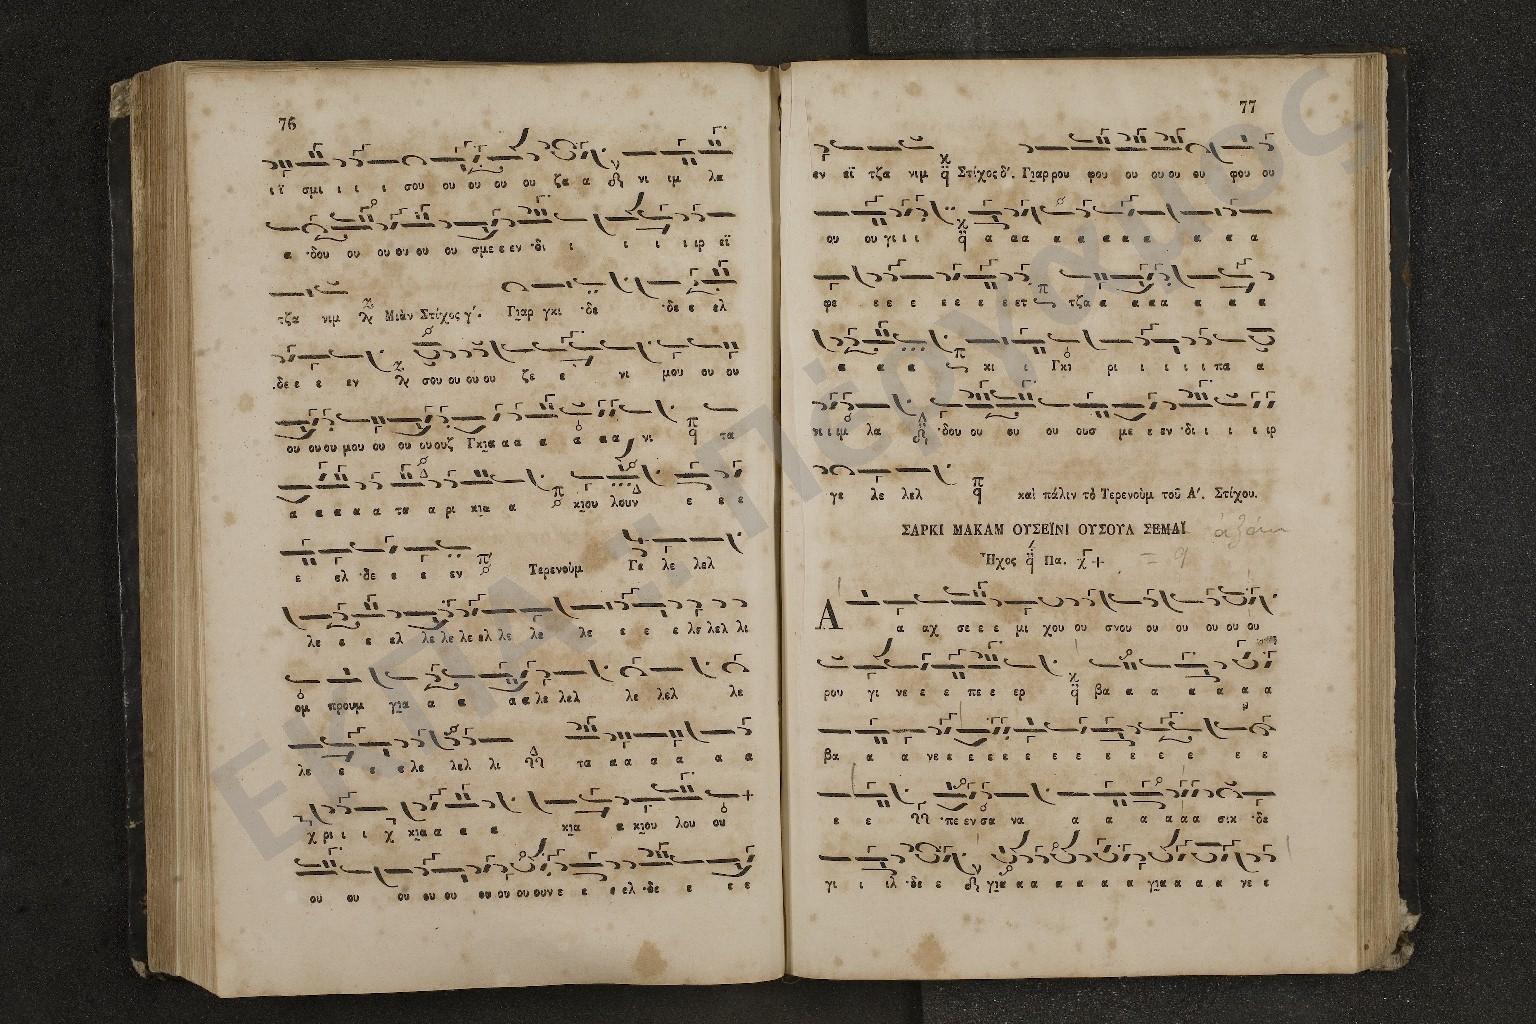 76
ι ϊ σμι ι ι ι σου ου ου ου ου ζα α νι ιμ λα
α ·δου ου ου ου ου ου σμε ε εν ·δι ι ι ι ι ιρ εϊ
τζα νιμ Μιὰν Στίχος γ΄. Γιαρ γκι ·δε ·δε ε ελ
·δε ε ε εν σου ου ου ου ζε ε νι μου ου ου
ου ου ου μου ου ου ου ουζ Γκια α α α α α α νι τα
α α α α α τα α ρι κια α κιου λουν ε ε ε
ε ελ ·δε ε ε εν Τερενοὺμ Γε λε λελ
λε ε ε ελ λε λε λε ελ λε λε λε ε ε ε λε λελ λι
ομ προυμ για α α α α λε λελ λε λελ λε
λε ε ε ε λε λελ λι τα α α α α α α
χ ρι ι ι κια α α α κια α κιου λου ου
ου ου ου ου ου ου ου ου ουν ε ε ε ελ ·δε ε ε ε
77
εν εϊ τζα νιμ Στίχος δ΄. Γιαρ ρου φου ου ου ου ου φου ου
ου ου γι ι ι α α α α α α α α α α α
φε ε ε ε ε ε ε ε ετ τζα α α α α α α α
α α α κι ι Γκι ρι ι ι ι ι πα α
νι ι ιμ λα ·δου ου ου ου ους με ε εν ·δι ι ι ι ιρ
γε λε λελ καὶ πάλιν τὸ Τερενοὺμ τοῦ Α΄. Στίχου.
ΣΑΡΚΙ ΜΑΚΑΜ ΟΥΣΕΪΝΙ ΟΥΣΟΥΛ ΣΕΜΑΪ
Ἦχος Πα.
Α α αχ σε ε ε μι χου ου σνου ου ου ου ου ου
ρου γι νε ε ε πε ε ερ βα α α α α α α
βα α α νε ε ε ε ε ε ε ε ε ε ε ε ε
ε ε ·πε εν σα να α α α α α α σικ ·δε
γι ι ιλ ·δε ε για α α α α α α για α α α νε ε